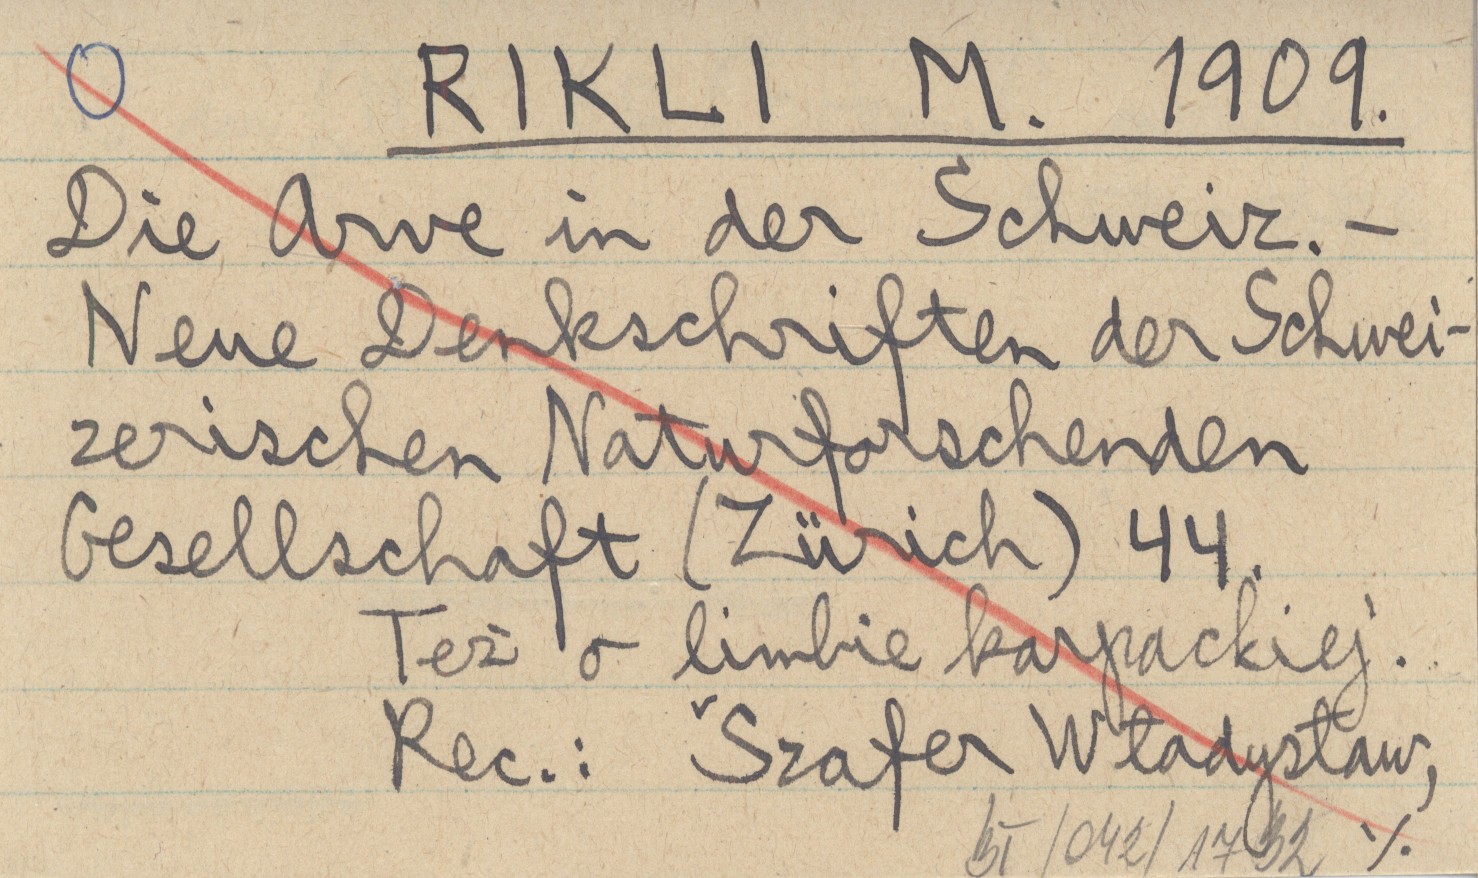 O RIKLI M. 1909.
Die Arve in der Schweiz. -
Neue Denkschriften der Schwei-
zerischen Naturforschenden
Gesellschaft (Zürich) 44.
Też o limbie karpackiej.
Rec.: Szafer Władysław,
/042/ 1732 ·/.